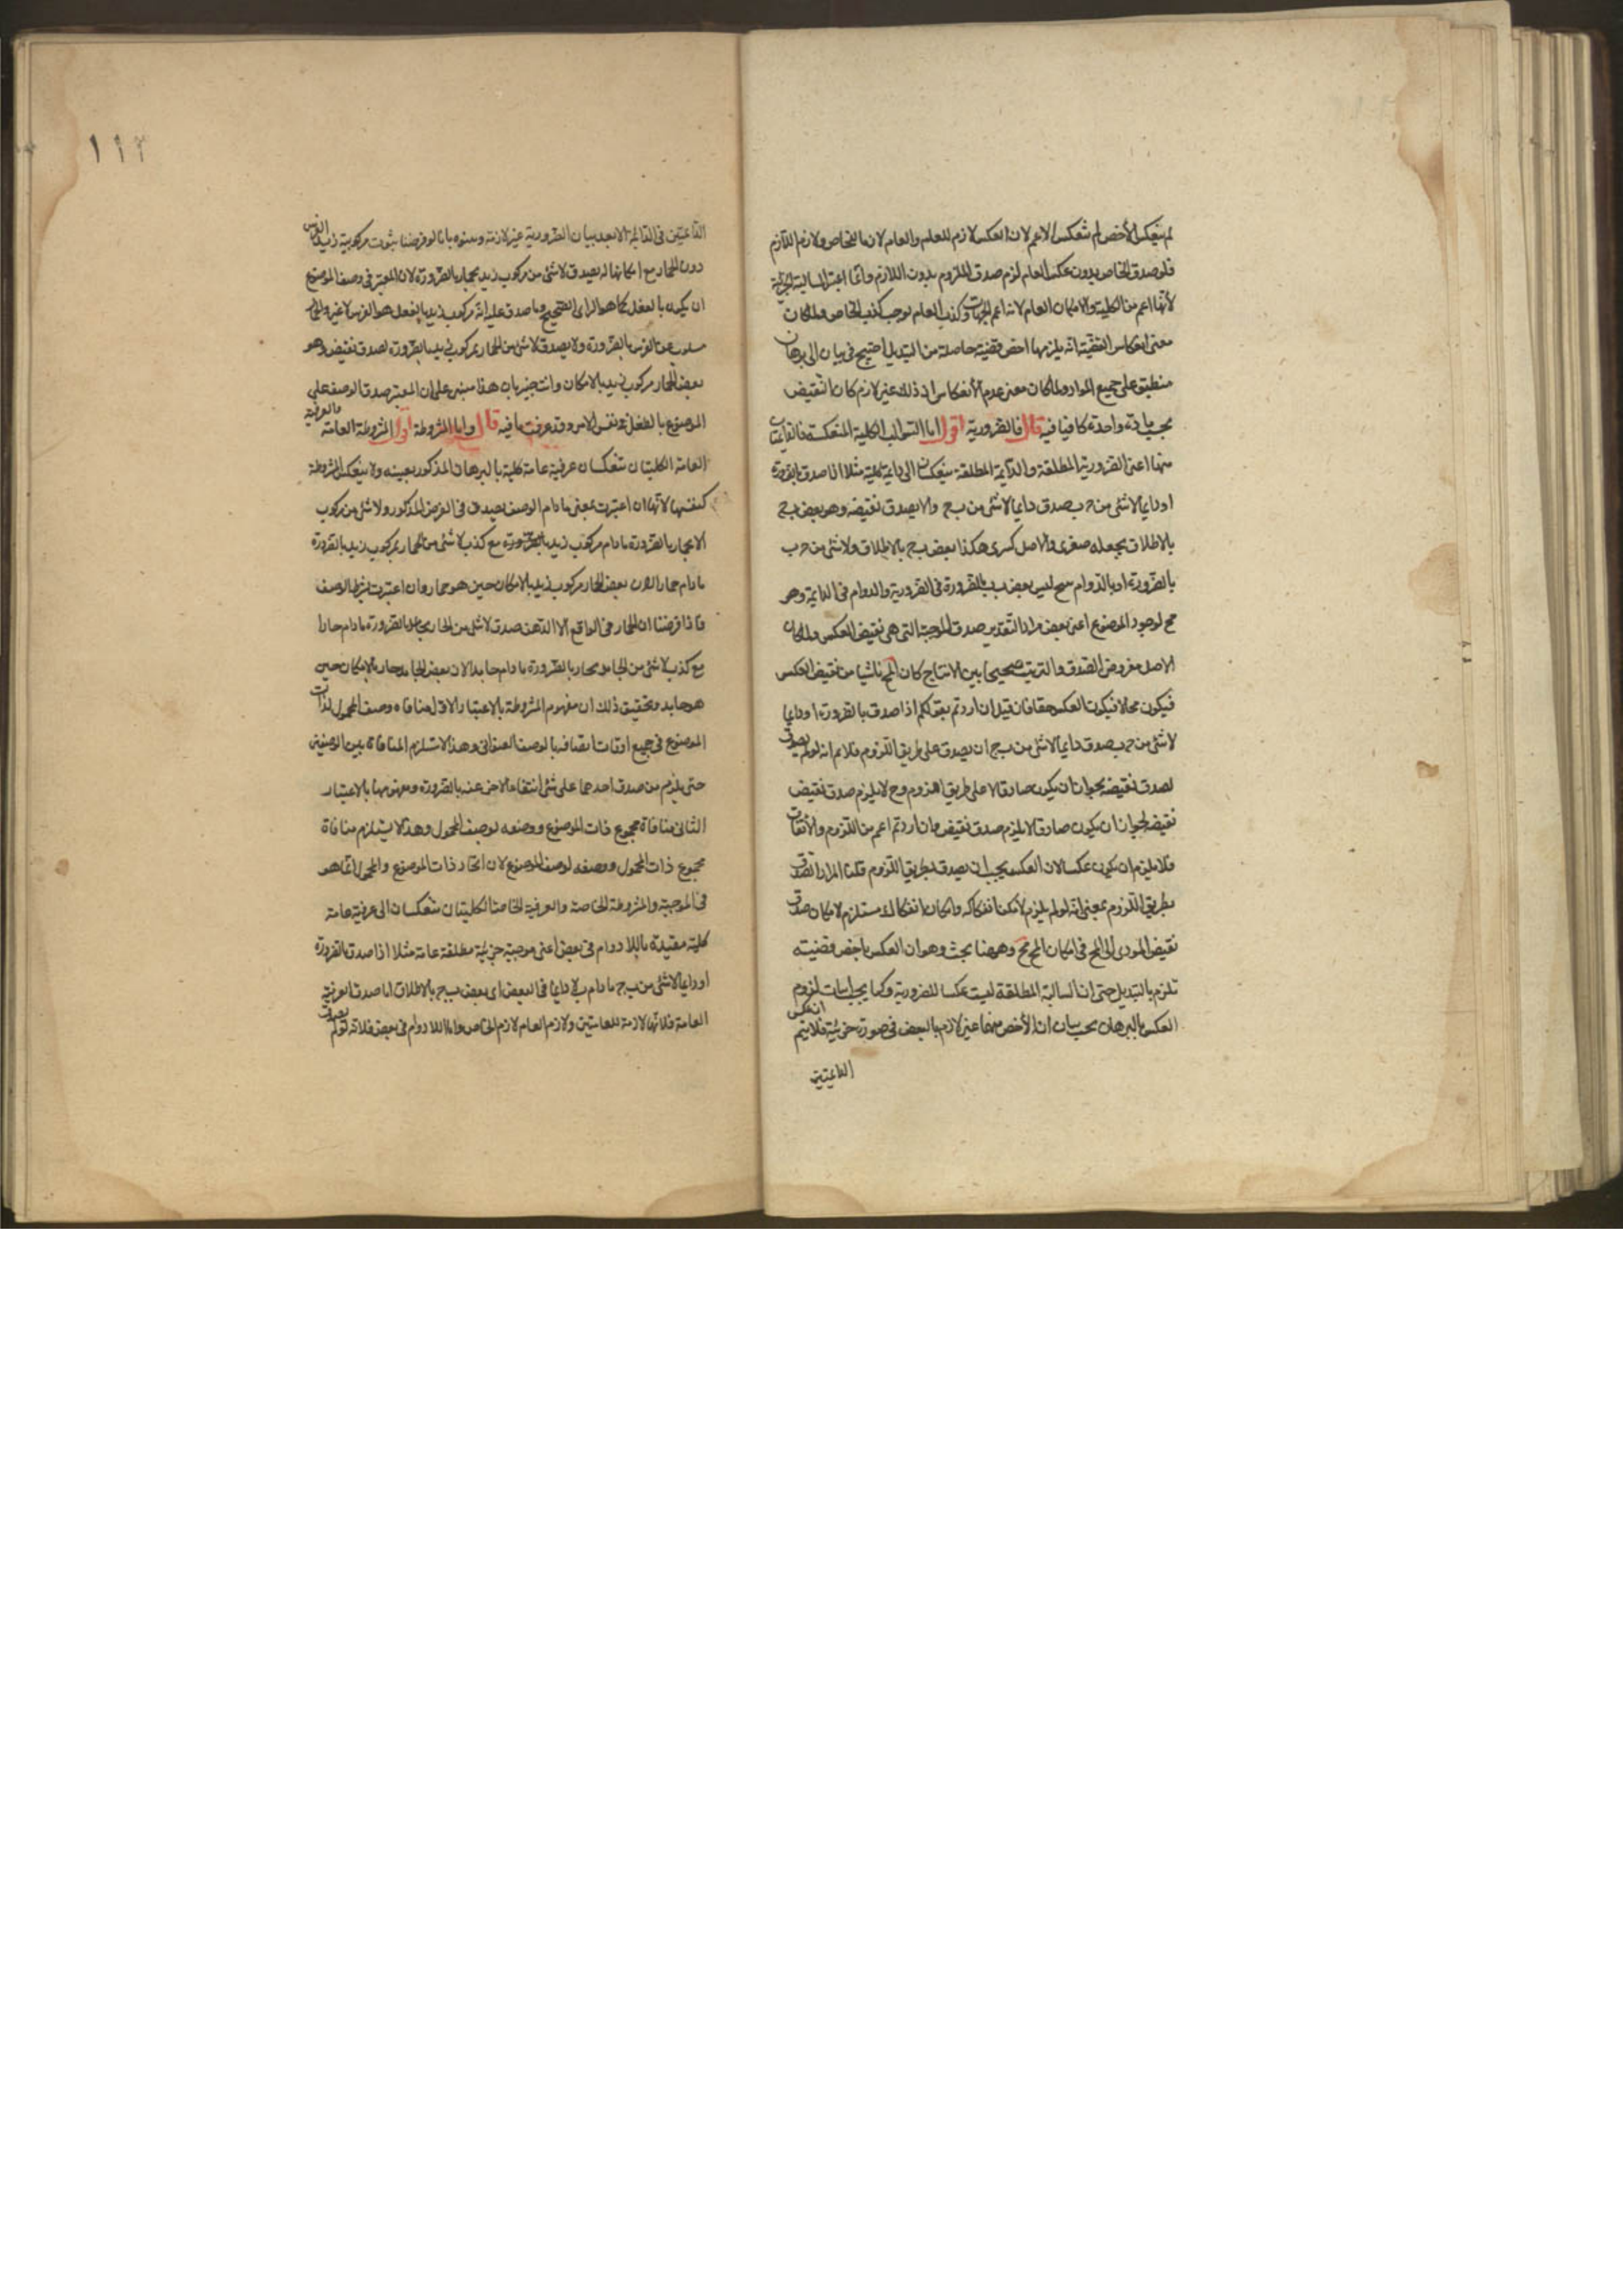 لم ينعكس الأخص لم ينعكس الاعم لان العكس لازم للعام والعام لازم للخاص ولازم اللازم
فلو صدق الخاص بدون عكس العام لزم صدق الملزوم بدون اللازم وانما اعتبر السالبة الجزئية
لأنها اعم من الكلية والامكان العام لانه اعم الجهات وكذب العام يوجب كذب الخاص ولما كان
معنى انعكاس القضية انه يلزمها اخص قضية حاصلة من التبديل احتيج في بيان الى برهان
منطبق على جميع المواد ولما كان معنى عدم الأنعكاس ان ذلك غير لازم كان النقيض
بحسب مادة واحدة كافيا فيه قال فالضرورية اقول اما السوالب الكلية المنعكسة فالدائمتان
منها اعنى الضرورية المطلقة والدائمة المطلقة ينعكسان الى دائمة كلية مثلا اذا صدق بالضرورة
او دايما لا شئ من ج ب صدق دايما لا شئ من ب ج والا يصدق نقيضه وهو بعض ب ج
بالاطلاق يجعله صغرى والاصل كبرى هكذا بعض ب ج بالاطلاق ولا شئ من ج ب
بالضرورة او بالدوام ينتج ليس بعض ب ب بالضرورة في الضرورية والدوام في الدايمة وهو
مح لوجود الموضوع اعنى بعض ب اذ التقدير صدق الموجبة التى هى نقيض العكس ولما كان
الاصل مفروض الصدق والترتيب صحيحا بين الانتاج كان المح ناشيا من نقيض العكس
فيكون محالا فيكون العكس حقا فان قيل ان اردتم بقولكم اذا صدق بالضرورة او دايما
لا شئ من ج ب صدق دايما لا شئ من ب ج ان يصدق على طريق اللزوم فلا نم انه لو لم يصدق
لصدق نقيضه لجواز ان يكون صادقا لا على طريق اللزوم وح لا يلزم صدق نقيض
نقيضه لجواز ان يكون صادقا لا يلزم صدق نقيض وان اردتم اعم من اللزوم والاتفاق
فلا يلزم ان يكون عكسا لان العكس يجب ان يصدق بطريق اللزوم قلنا المراد الصدق
بطريق اللزوم بمعنى انه لو لم يلزم لأمكن انفكاكه وامكان انفكاكه مستلزم لامكان صدق
نقيض المودى الى المح في امكان المح مح وههنا بحث وهو ان العكس اخص قضية
تلزم بالتبديل حتى ان السالبة المطلقة ليست عكسا للضرورية وكما يجب اثبات لزوم
العكس بالبرهان يجب بيان ان الأخص منها غير لازم بالبعض في صورة جزئية فلا يتم انعكس
الدائمتين
١١٣
الدائمتين في الدائمة الا بعد بيان ان الضرورية غير لازمة وبينوه بانا لو فرضنا ثبوت مركوبية زيد الفرس
دون الحمار مع امكانها له يصدق لا شئ من مركوب زيد بحمار بالضرورة لان المعتبر في وصف الموضوع
ان يكون بالفعل كما هو الراى الصحيح وما صدق عليه انه مركوب زيد بالفعل هو الفرس لا غير والحمار
مسلوب عن الفرس بالضرورة ولا يصدق لا شئ من الحمار بمركوب زيد بالضرورة لصدق نقيضه وهو
بعض الحمار مركوب زيد بالامكان وانت خبير بان هذا مبنى على ان المعتبر صدق الوصف على
الموضوع بالفعل في نفس الامر وقد عرفت ما فيه قال واما المشروطة اقول المشروطة العامة والعرفية
العامة الكليتان تنعكسان عرفية عامة كلية بالبرهان المذكور بعينه ولا ينعكس المشروطة
كنفسها لانها ان اعتبرت بمعنى مادام الوصف يصدق في الفرض المذكور ولا شئ من مركوب
الا بحمار بالضرورة مادام مركوب زيد بالضرورة مع كذب لا شئ من الحمار بمركوب زيد بالضرورة
مادام حمارا لان بعض الحمار مركوب زيد بالامكان حين هو حمار وان اعتبرت بشرط الوصف
فاذا فرضنا ان الحار في الواقع الا الدهن صدق لا شئ من الحار بجامد بالضرورة مادام حارا
مع كذب لا شئ من الجامد بحار بالضرورة مادام جامدا لان بعض الجامد حار بالامكان حين
هو جامد وتحقيق ذلك ان مفهوم المشروطة بالاعتبار الاول منافاة وصف المحمول لذات
الموضوع في جميع اوقات اتصافه بالوصف العنوانى وهذا لا يستلزم المنافاة بين الوصفين
حتى يلزم من صدق احدهما على شئ انتفاء الاخر عنه بالضرورة ومفهومها بالاعتبار
الثانى منافاة مجموع ذات الموضوع ووصفه لوصف المحمول وهذا لا يستلزم منافاة
مجموع ذات المحمول ووصفه لوصف الموضوع لان اتحاد ذات الموضوع والمحمول انما هو
في الموجبة والمشروطة الخاصة والعرفية الخاصة الكليتان تنعكسان الى عرفية عامة
كلية مقيدة باللا دوام في بعض اعنى موجبة جزئية مطلقة عامة مثلا اذا صدق بالضرورة
او دايما لا شئ من ب ج مادام ب لا دايما في البعض اى بعض ب ج بالاطلاق اما صدق العرفية
العامة فلانها لازمة للعامتين ولازم العام لازم الخاص واما اللا دوام في بعض فلانه لو لم يصدق